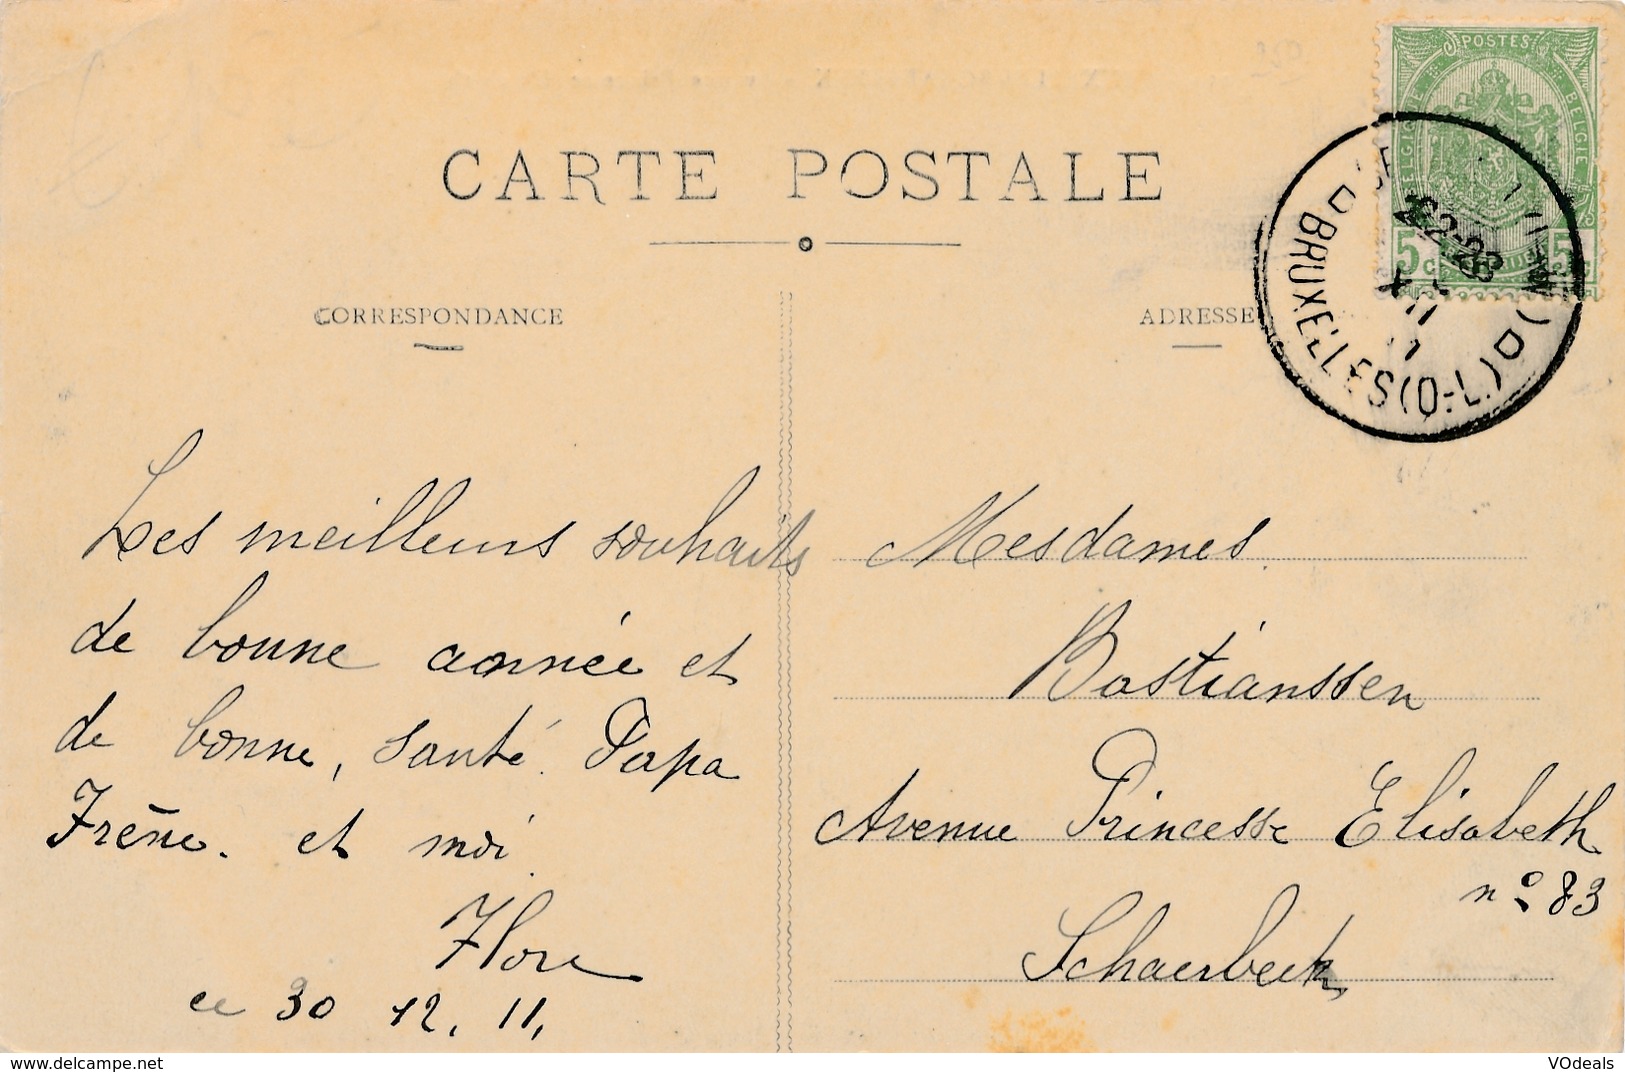 CARTE POSTALE
CORRESPONDANCE
ADRESSE
POSTES
BELGIQUE
BELGIE
5 c
5 c
22-23
11
BRUXELLES (Q-L.)
Les meilleurs souhaits
de bonne année et
de bonne, santé. Papa
Irène. et moi
Flore
ce 30 12. 11,
Mesdames.
Bastianssen
Avenue Princesse Elisabeth
n° 83
Schaerbeek
http://www.delcampe.net
VOdeals